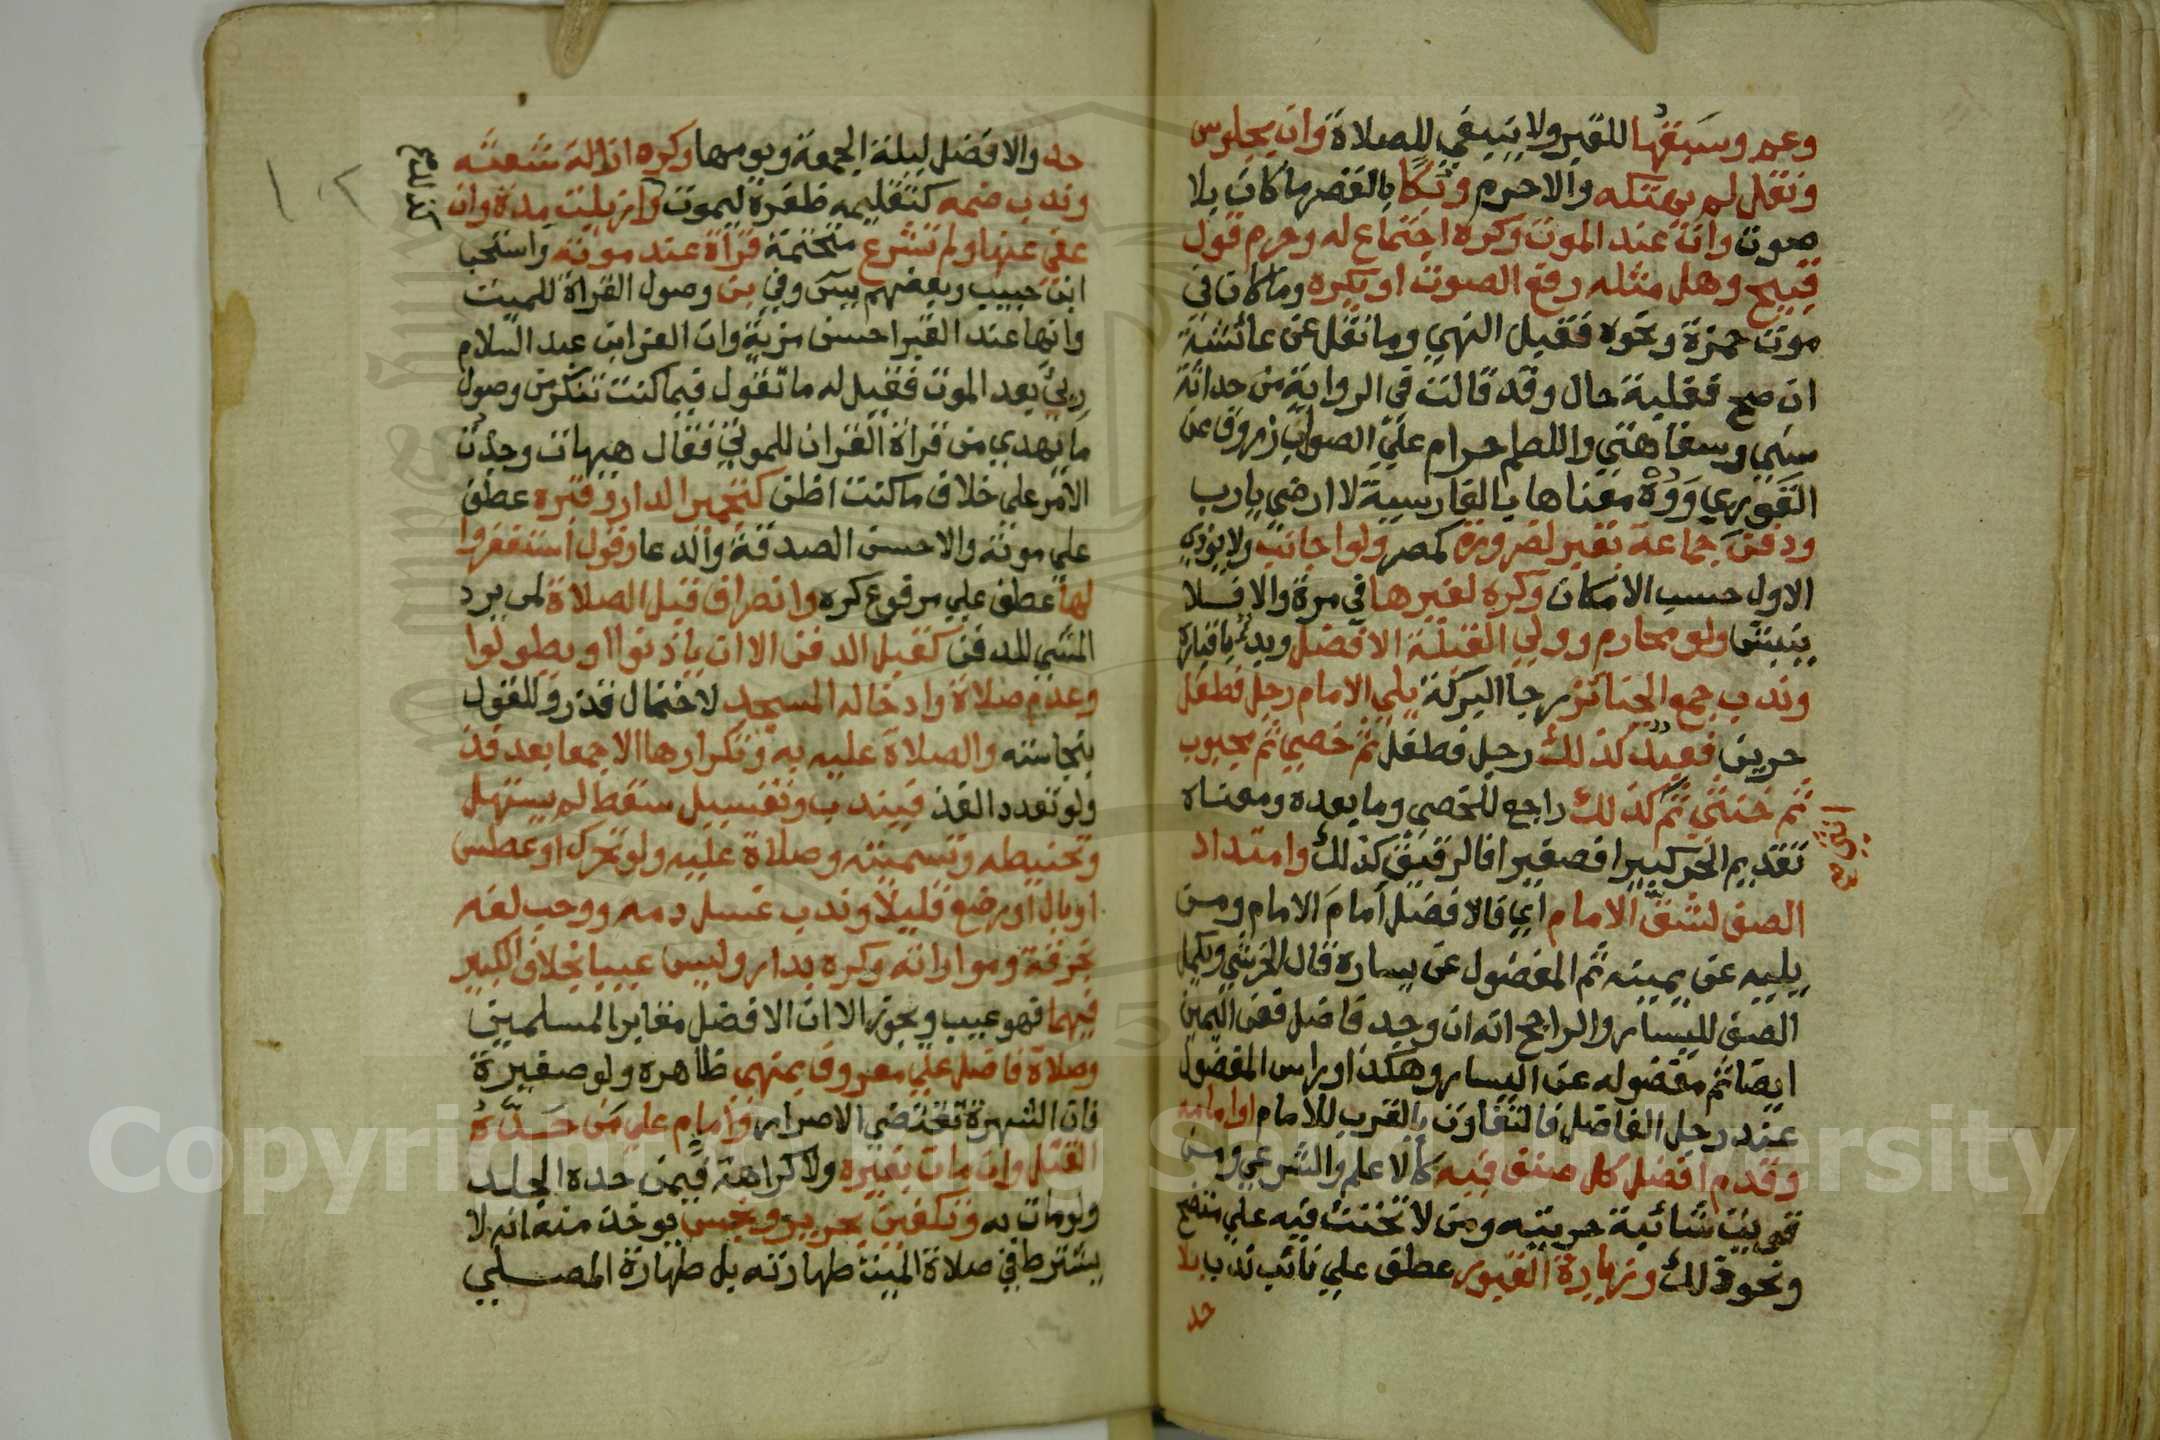 وعمر وسبقها للقبر ولا ينبغي للصلاة وان بجلوس
ونقل لم يهتكه والاحرم وبكا بالقصر ما كان بلا
صوت وان عند الموت وكره اجتماع له وحرم قول
قبيح وهل مثله رفع الصوت او يكره وما كان في
موت حمزة ونحوه فقبل النهي وما نقل عن عائشة
ان صح فغلبة حال وقد قالت في الرواية من حداثة
سني وسفاهتي واللطم حرام علي الصواب زروق عن
القوري ووه معناها بالفارسية لا ارضي يارب
ودفن جماعة بقبر لضرورة كمصر ولو اجانب ولا يوذي
الاول حسب الامكان وكره لغيرها في مرة والا فلا
ينبش ولو محارم وولي القبلة الافضل وبدئ بافباره
وندب جمع الجنائز رجا البركة يلي الامام رجل فطفل
حرين فعبد كذلك رجل فطفل ثم خصي ثم مجبوب
ثم خنثي ثم كذلك راجع للخصي وما بعده ومعناه
تقديم الحر كبيرا فصغيرا فالرقيق كذلك وامتداد
الصف لشق الامام اي فالافضل امام الامام ومن
يليه عن يمينه ثم المفضول عن يساره قال الخرشي ويكمل
الصف لليسار والراجح انه ان وجد فاضل فعن اليمين
ايضا ثم مفضوله عن اليسار وهكذا وراس المفضول
عند رجل الفاضل فالتفاوت بالقرب للامام او امامه
وقدم افضل كل صنف فيه كالاعلم والشرعي ومن
قويت شائبة حريته ومن لا تخنث فيه علي متضح
ونحو ذلك وزيارة القبور عطف علي نائب ندب بلا
حد
حد والافضل ليلة الجمعة ويومها وكره ازالة شعثه
وندب ضمه كتقليمه ظفره ليموت وازيلت مدة وان
عفي عنها ولم تشرع متختمة قراة عند موته واستحبا
ابن حبيب وبعضهم يس وفي بن وصول القراة للميت
وانها عند القبر احسن مزية وان العز ابن عبد السلام
ربئ بعد الموت فقيل له ما تقول فيما كنت تنكر من وصول
ما يهدي من قراة القران للموتي فقال هيهات وجدت
الامر علي خلاف ما كنت اظن كتجمير الدار وقبره عطف
علي موته والاحسن الصدقة والدعا وقول استغفروا
لها عطف علي مرفوع كره وانصراف قبل الصلاة لمن يرد
المشي للدفن كقبل الدفن الا ان ياذنوا او يطولوا
وعدم صلاة وادخاله المسجد لاحتمال قذر وللقول
بنجاسته والصلاة عليه به وتكرارها الا جمعا بعد فذ
ولو تعدد الفذ فيندب وتغسيل سقط لم يستهل
وتحنيطه وتسميته وصلاة عليه ولو تحرك او عطس
او بال او رضع قليلا وندب غسل دمه ووجب لفه
بخرقة ومواراته وكره بدار وليس عيبا بخلاف الكبير
فيهما فهو عيب ويجوز الا ان الافضل مقابر المسلمين
وصلاة فاضل علي معروف بمنهي ظاهره ولو صغيرة
فان الشهرة تقتضي الاصرار وامام علي من حده
القتل وان مات بغيره ولا كراهة فيمن حده الجلد
ولو مات به وتكفين بحرير ونجس يوخذ منه انه لا
يشترط في صلاة الميت طهارته بل طهارة المصلي